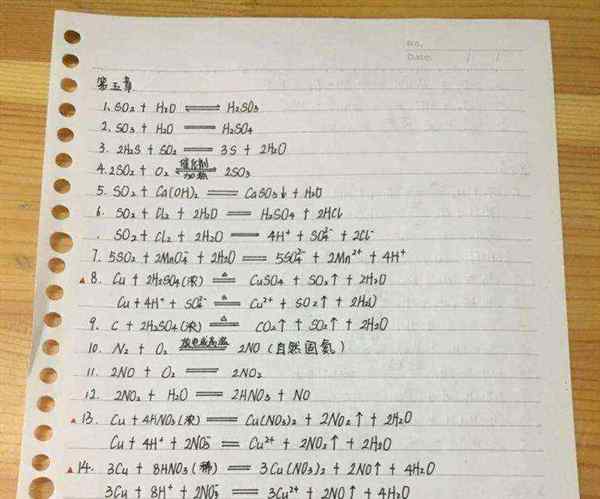 No.
Date
第五章
1. SO₂ + H₂O ⇌ H₂SO₃
2. SO₃ + H₂O == H₂SO₄
3. 2H₂S + SO₂ == 3S + 2H₂O
4. 2SO₂ + O₂ 催化剂⇌加热 2SO₃
5. SO₂ + Ca(OH)₂ == CaSO₃↓ + H₂O
6. SO₂ + Cl₂ + 2H₂O == H₂SO₄ + 2HCl
SO₂ + Cl₂ + 2H₂O == 4H⁺ + SO₄²⁻ + 2Cl⁻
7. 5SO₂ + 2MnO₄⁻ + 2H₂O == 5SO₄²⁻ + 2Mn²⁺ + 4H⁺
▲8. Cu + 2H₂SO₄(浓) =△= CuSO₄ + SO₂↑ + 2H₂O
Cu + 4H⁺ + SO₄²⁻ =△= Cu²⁺ + SO₂↑ + 2H₂O
9. C + 2H₂SO₄(浓) =△= CO₂↑ + SO₂↑ + 2H₂O
10. N₂ + O₂ =放电或高温= 2NO (自然固氮)
11. 2NO + O₂ == 2NO₂
12. 2NO₂ + H₂O == 2HNO₃ + NO
▲13. Cu + 4HNO₃(浓) == Cu(NO₃)₂ + 2NO₂↑ + 2H₂O
Cu + 4H⁺ + 2NO₃⁻ == Cu²⁺ + 2NO₂↑ + 2H₂O
▲14. 3Cu + 8HNO₃(稀) == 3Cu(NO₃)₂ + 2NO↑ + 4H₂O
3Cu + 8H⁺ + 2NO₃⁻ == 3Cu²⁺ + 2NO↑ + 4H₂O